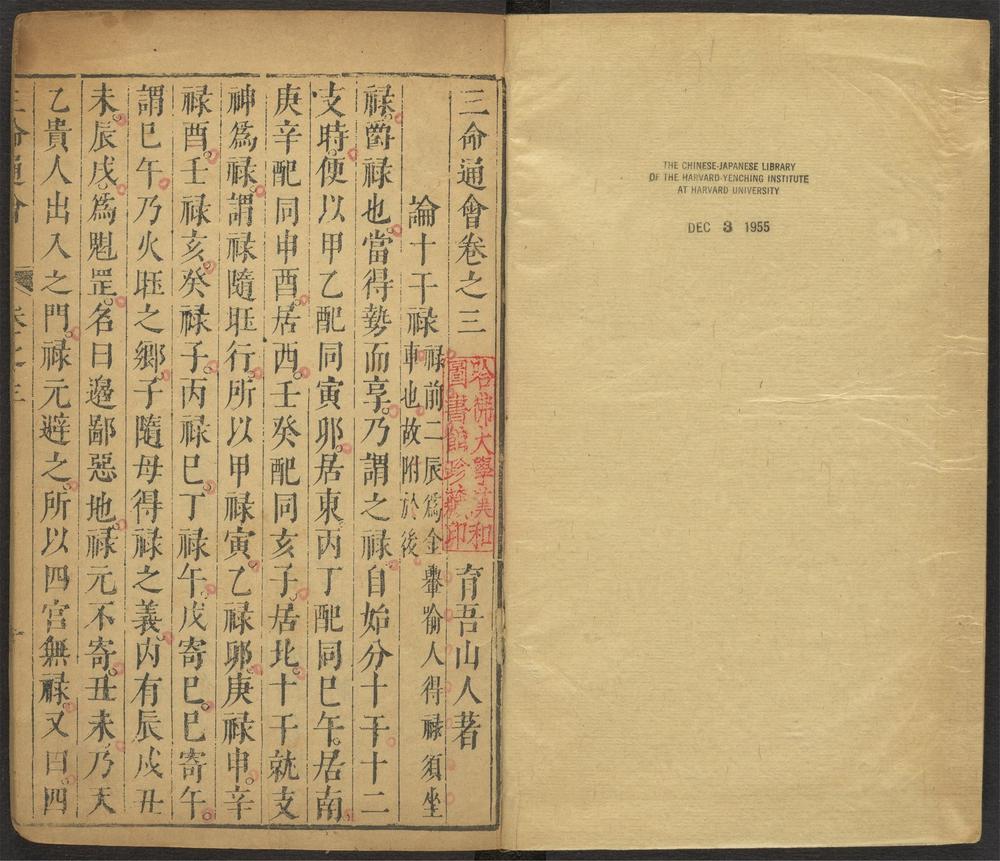 THE CHINESE-JAPANESE LIBRARY
OF THE HARVARD-YENCHING INSTITUTE
AT HARVARD UNIVERSITY
DEC 3 1955
三命通會卷之三
育吾山人著
哈佛大學漢和
圖書館珍藏印
論十干祿
祿前二辰爲金轝喻人得祿須坐
車也故附於後
祿爵祿也當得勢而享乃謂之祿自始分十干十二
支時便以甲乙配同寅卯居東丙丁配同巳午居南
庚辛配同申酉居西壬癸配同亥子居北十干就支
神爲祿謂祿隨旺行所以甲祿寅乙祿卯庚祿申辛
祿酉壬祿亥癸祿子丙祿巳丁祿午戊寄巳巳寄午
謂巳午乃火旺之鄉子隨母得祿之義內有辰戌丑
未辰戌爲魁罡名曰邊鄙惡地祿元不寄丑未乃天
乙貴人出入之門祿元避之所以四宮無祿又曰四
三命通會
卷之三